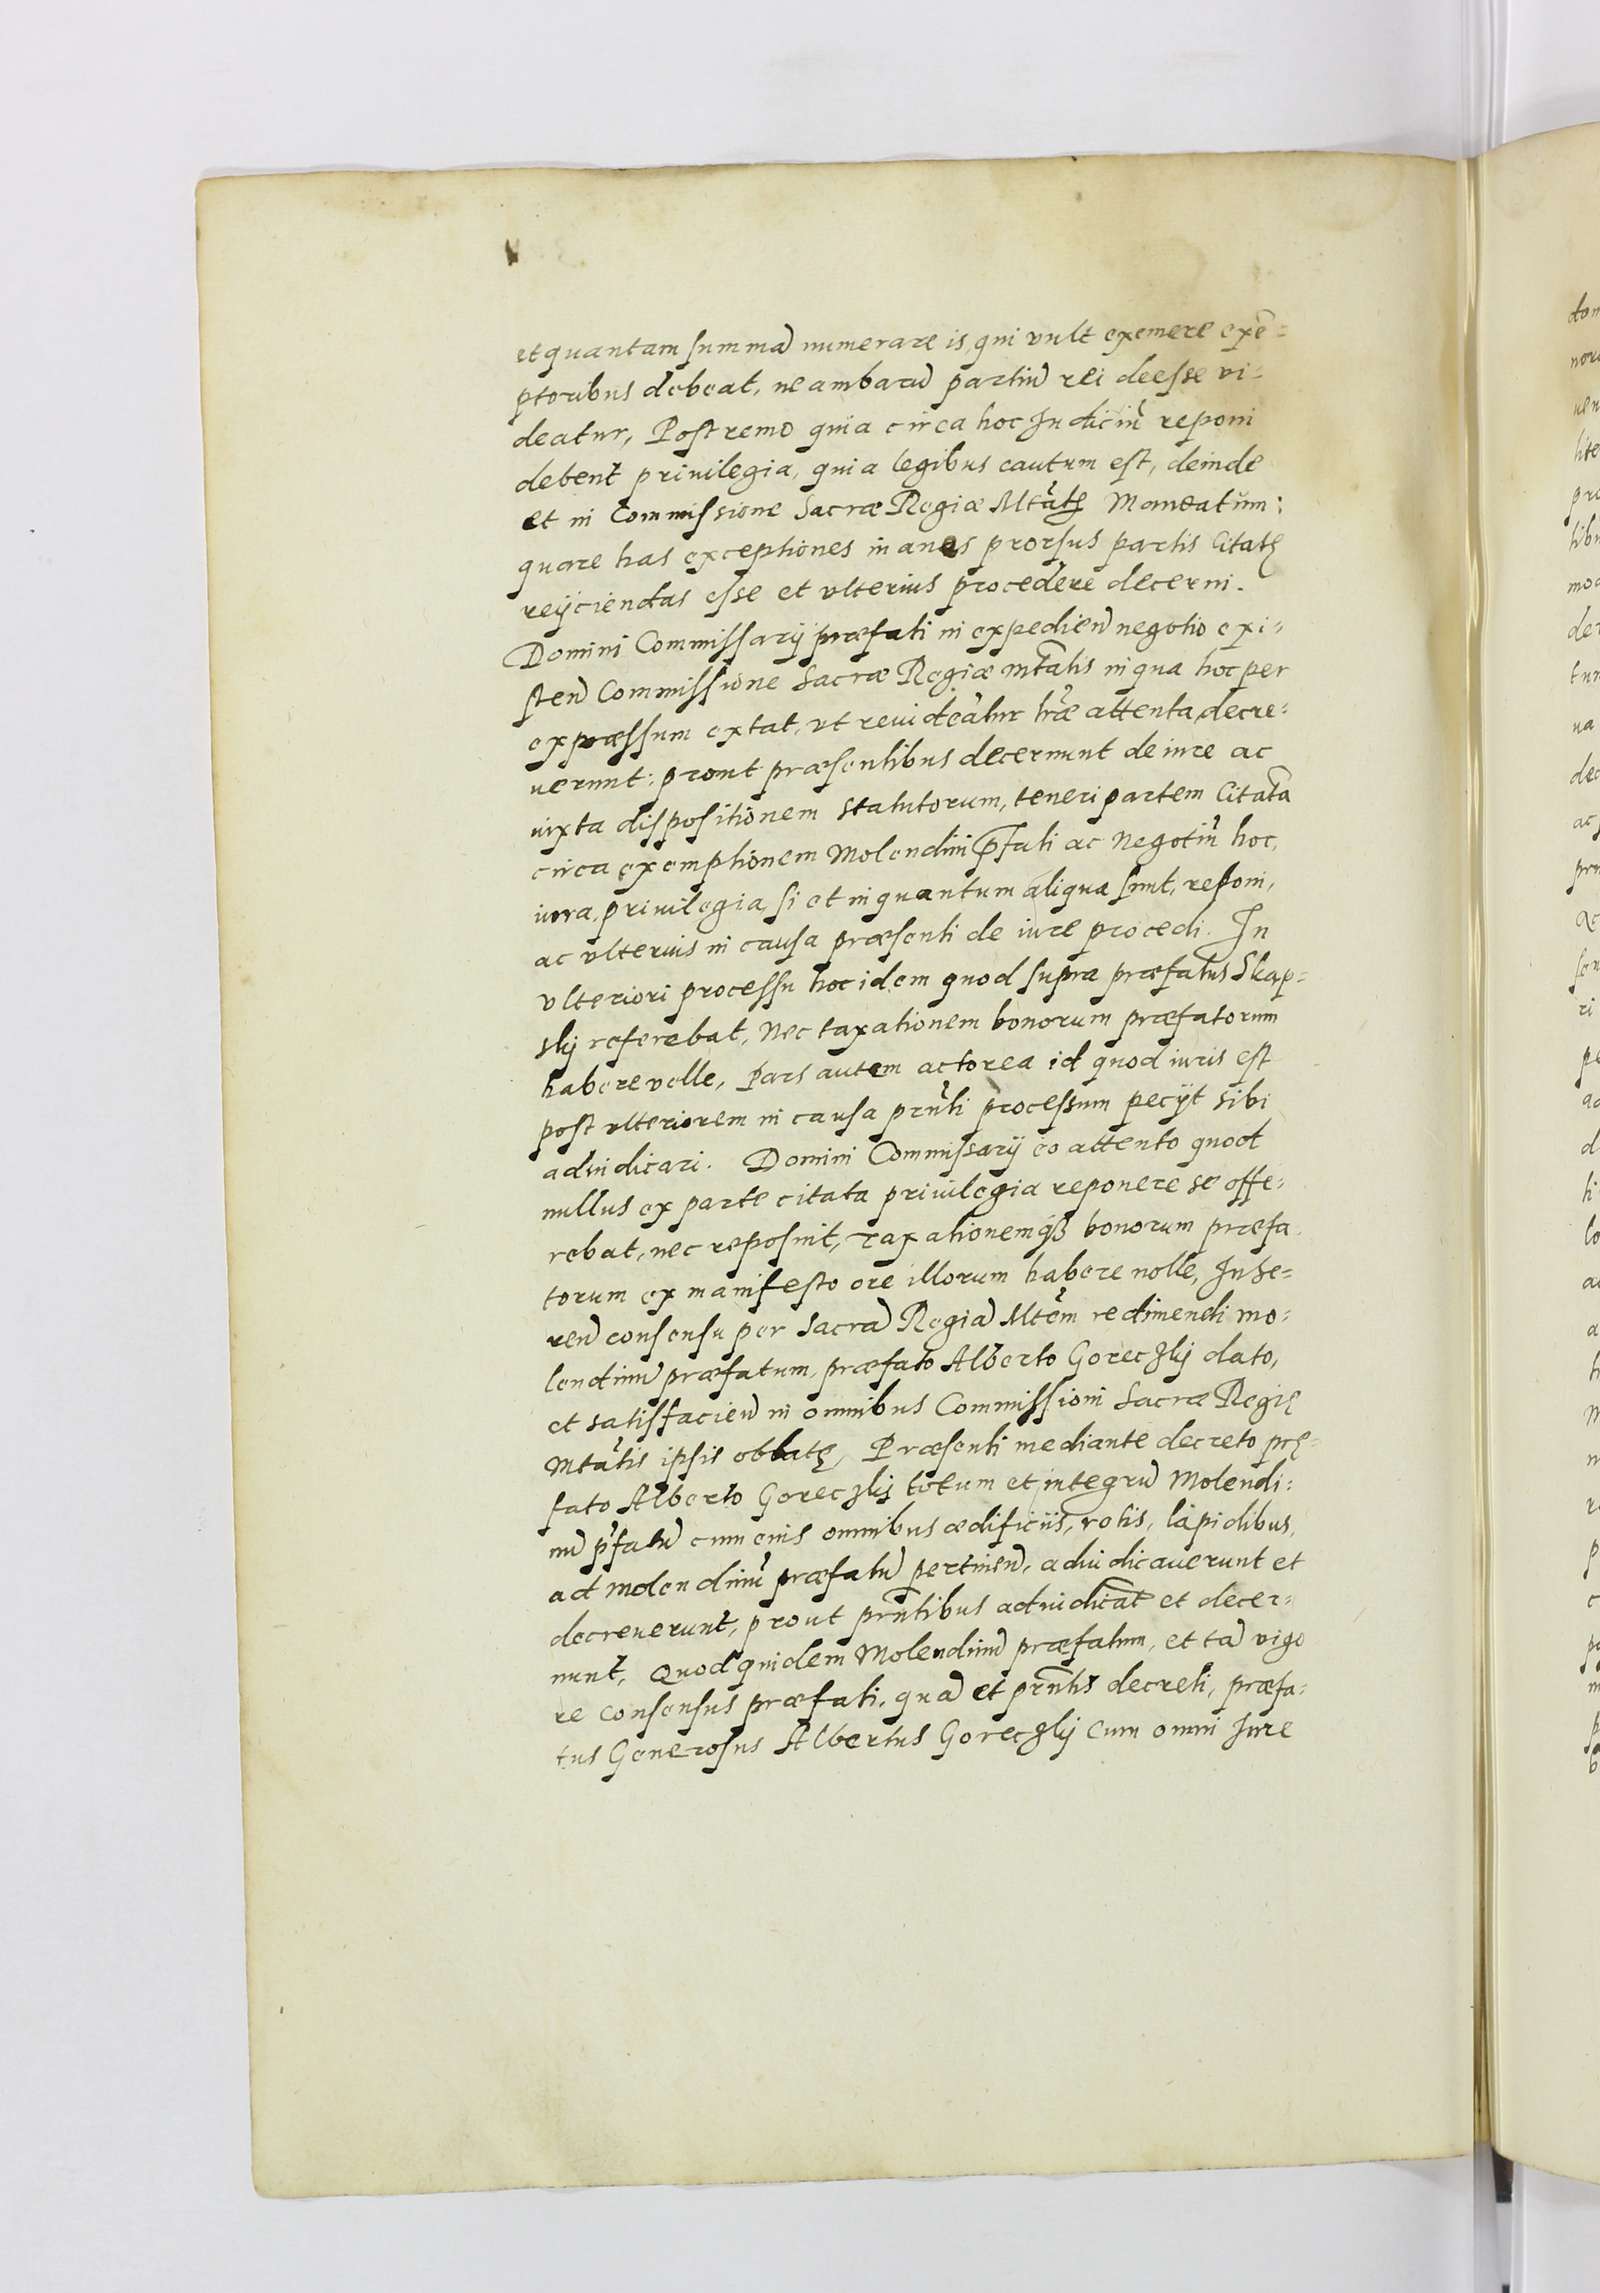 et quantam summã numerare is, qui vult exemere exẽ=
ptoribus debeat, ne ambarũ partiũ rei deesse vi=
deatur, Postremo quia circa hoc Judiciũ reponi
debent privilegia, quia legibus cautum est, deinde
et in Commissione Sacræ Regiæ Mtãtę Mandatum:
quare has exceptiones inanes prorsus partis Citatę
reijciendas esse et vlterius procedere decerni.
Domini Commissarij præfati in expedien̄ negotio exi=
sten̄ Commissione Sacræ Regiæ Mtãtis in qua hoc per
expræssum extat, vt reuideãtur lr̃æ attenta, decre=
uerunt: prout præsentibus decernunt de iure ac
iuxta dispositionem statutorum, teneri partem Citatã
circa exemptionem Molendini p̃fati ac Negotiũ hoc,
iura, priuilegia, si et in quantum aliqua sunt, reponi,
ac vlterius in causa præsenti de iure procedi. In
vlteriori processu hoc idem quod supra præfatus Skap=
skij referebat, Nec taxationem bonorum præfatorum
habere velle, Pars autem actorea id quod iuris est
post vlteriorem in causa prñti processum pecijt sibi
adiudicari. Domini Commissarij eo attento quod
nullus ex parte citata priuilegia reponere se offe=
rebat, nec reposuit, Taxationemq3 bonorum præfa
torum ex manifesto ore illorum habere nolle, Inhe=
ren̄ consensu per Sacrã Regiã Mtẽm redimendi mo=
lendinũ præfatum, præfato Alberto Goreczkij dato,
et satisfacien̄ in omnibus Commissioni Sacræ Regię
Mtãtis ipsis oblatę, Præsenti mediante decreto prę=
fato Alberto Goreczkij totum et integrũ Molendi=
nũ p̃fatũ cum eius omnibus ædificiis, rotis, lapidibus,
ad Molendinũ præfatũ pertinen̄, adiudicauerunt et
decreuerunt, prout prñtibus adiudicãt et decer=
nunt, Quod quidem Molendinũ præfatum, et tã vigo
re consensus præfati, quã et prñtis decreti, præfa=
tus Generosus Albertus Goreczkij cum omni Jure